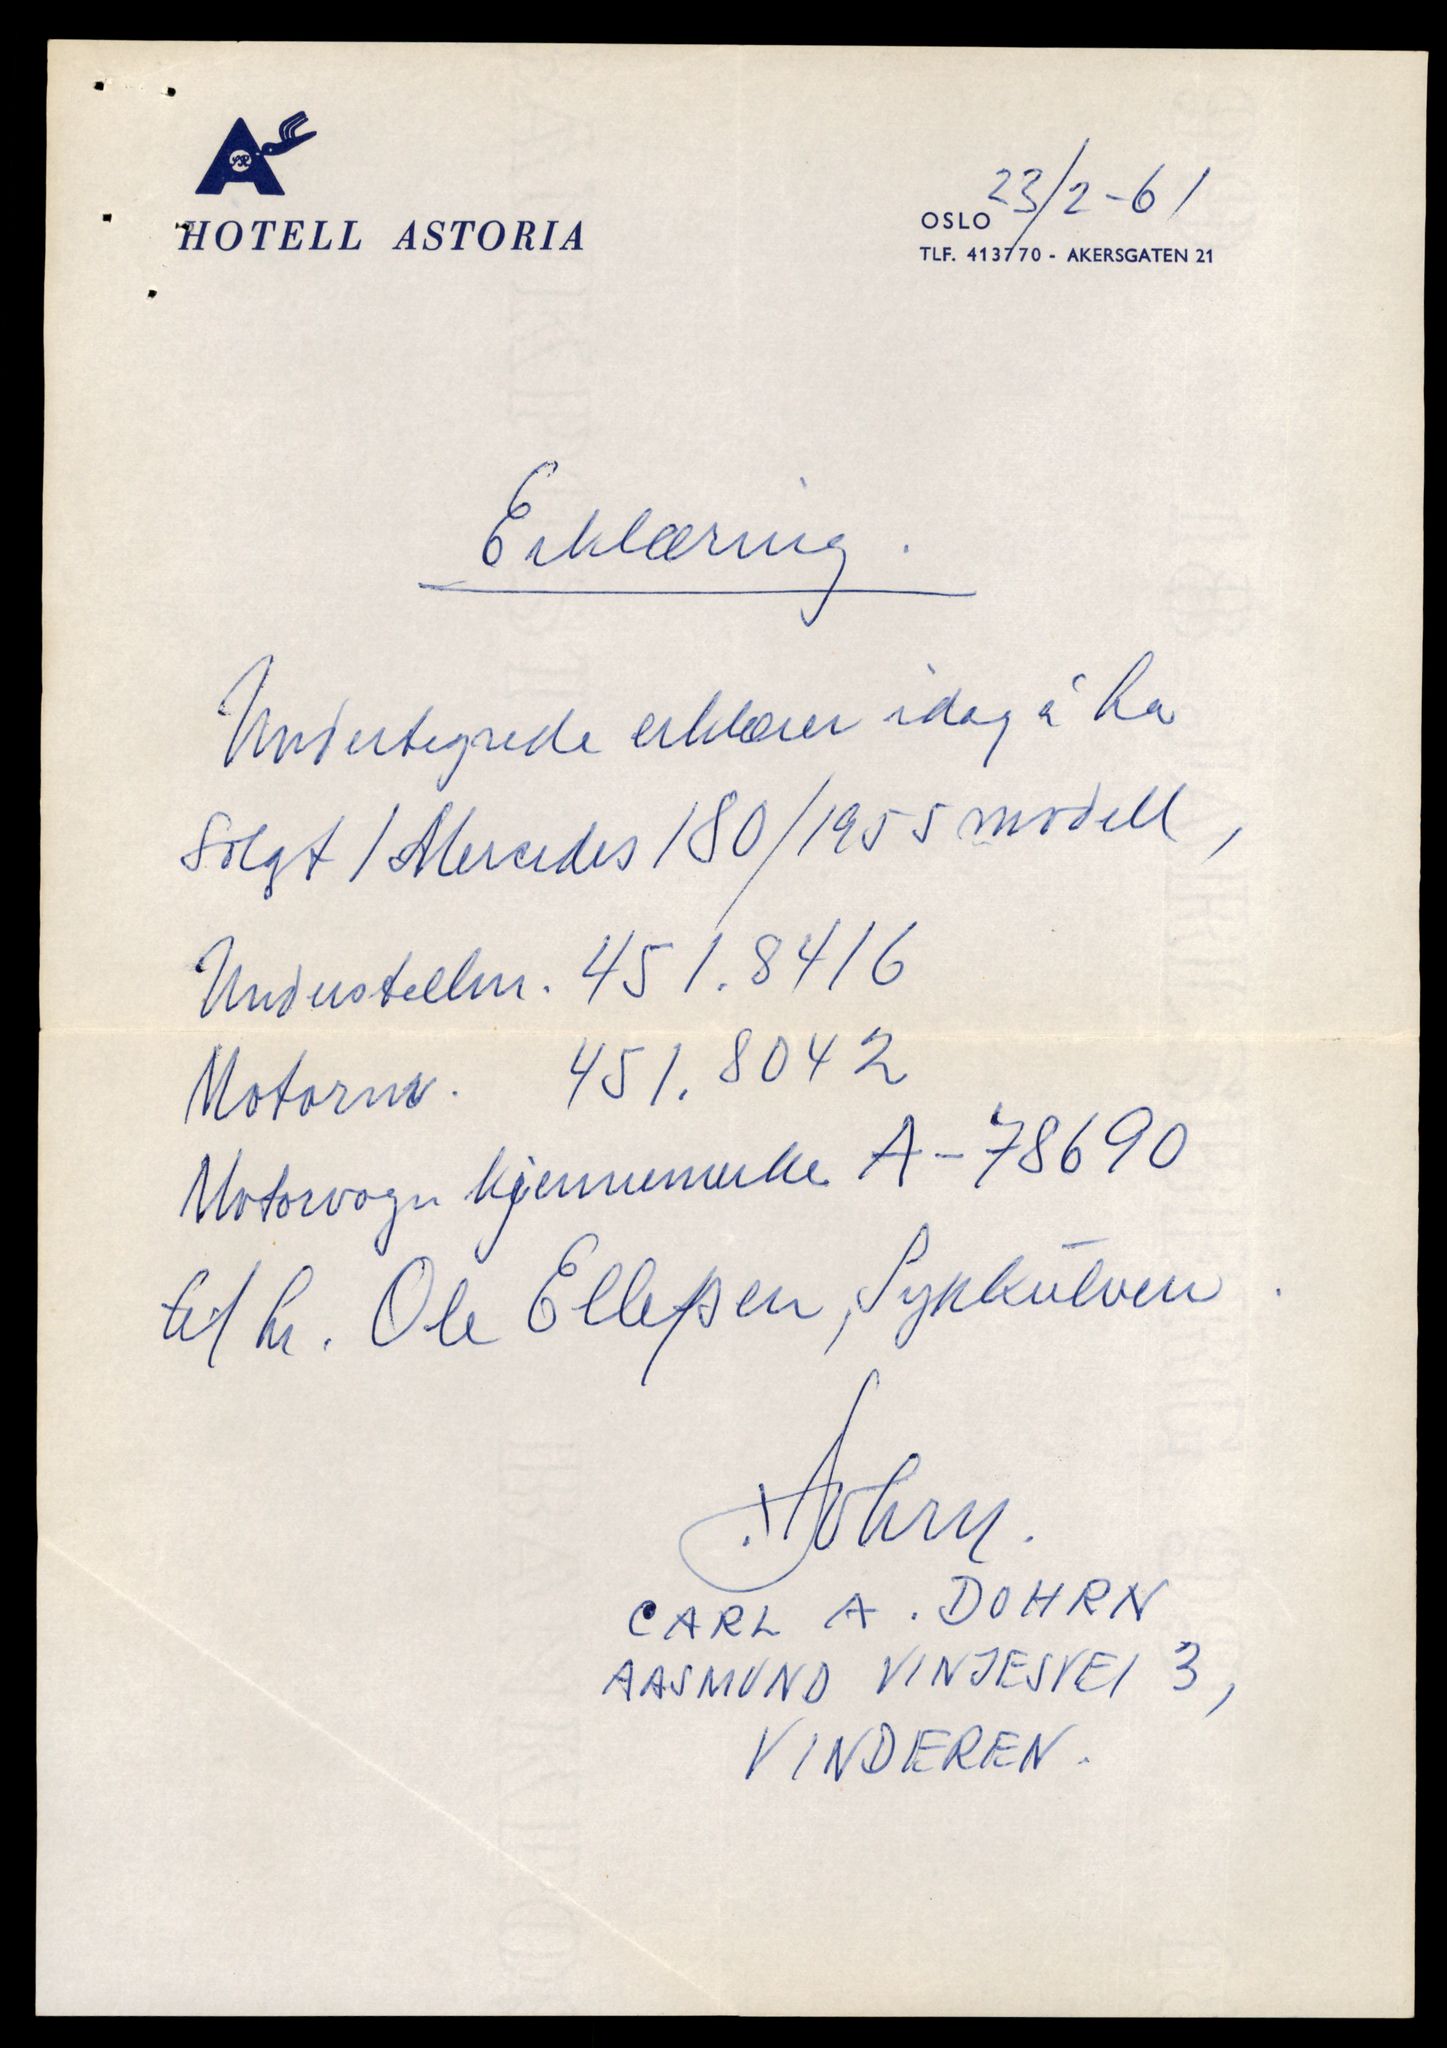 HOTELL ASTORIA
OSLO 23/2-61
TLF. 413770 - AKERSGATEN 21
Erklæring.
Undertegnede erklærer idag å ha
solgt 1 Mercedes 180/1955 modell,
Understellnr. 451.8416
Motornr. 451.8042
Motorvogn kjennemerke A-78690
til hr. Ole Ellefsen, Sykkülven.
Dohrn.
CARL A. DOHRN
AASMUND VINJESVEI 3,
VINDEREN.